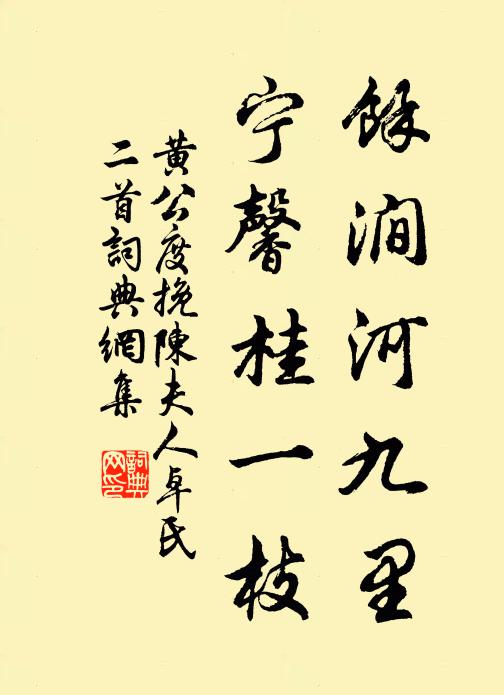 餘澗河九里
宁馨桂一枝
黄公度挽陳夫人卓氏
二首詞典網集
詞典网印